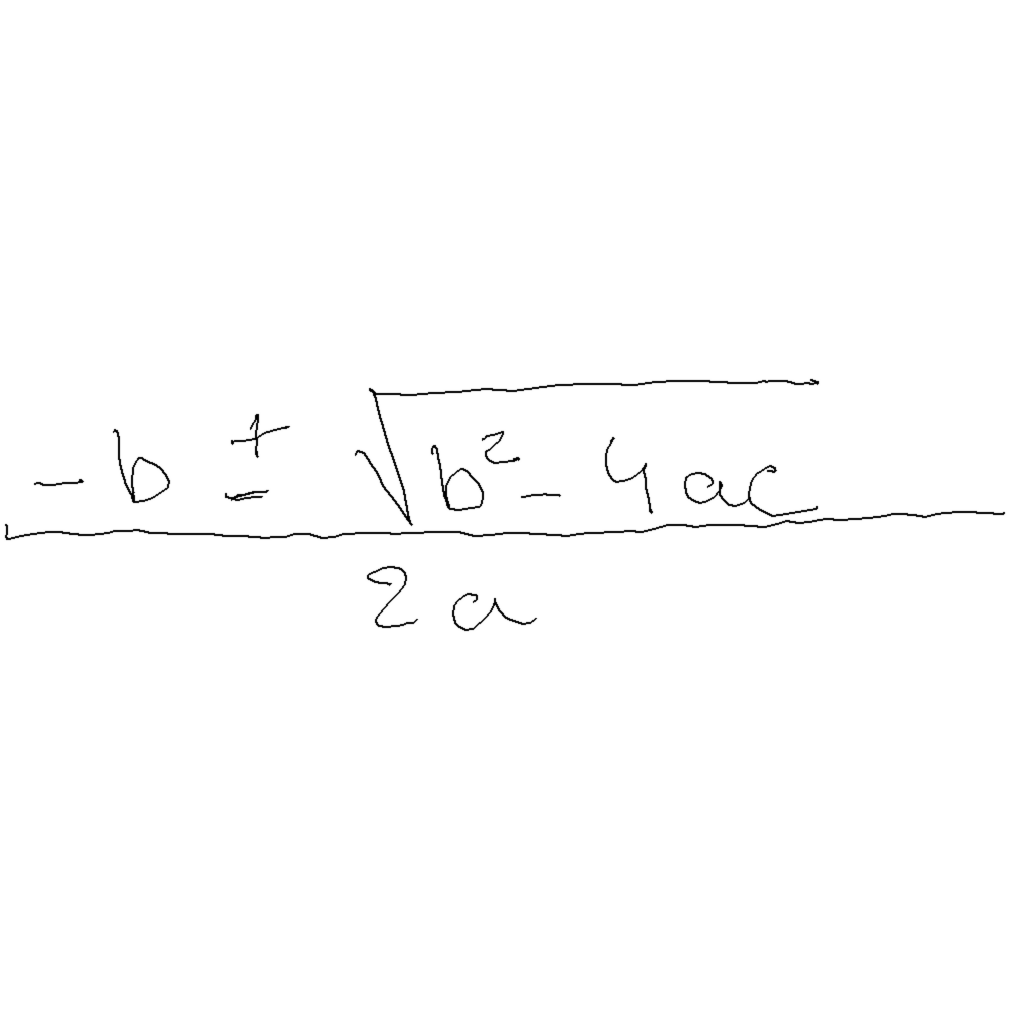 -b ± √(b² - 4ac)
2a